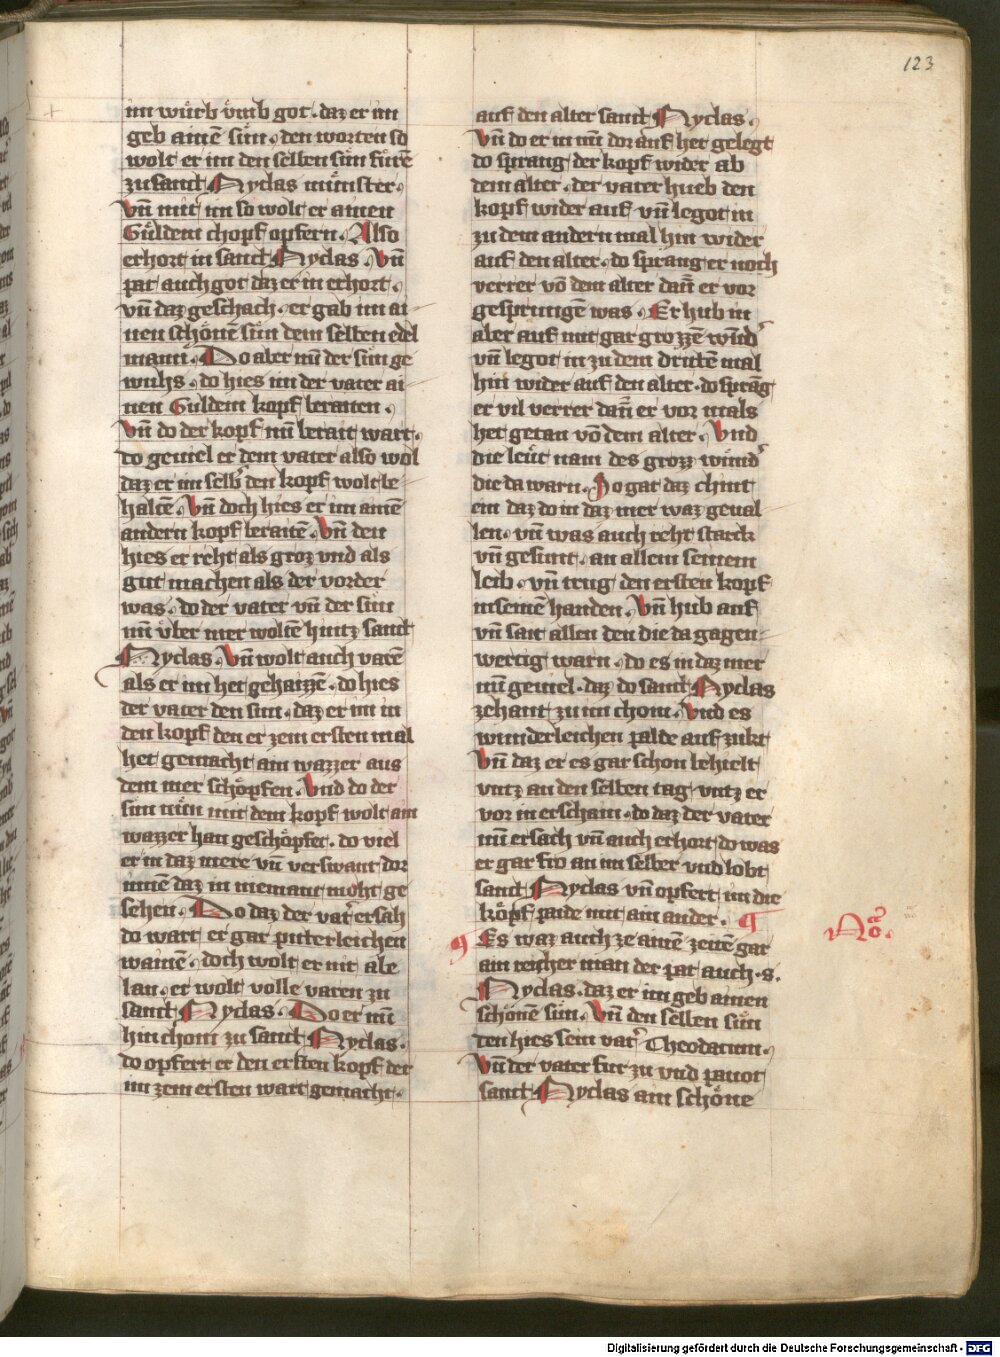 123
im würb vmb got · daz er im
geb ainē sün · den worten so
wolt er im den selben sün fürē
zu sand Nyclas münster ·
Vn̄ mit im so wolt er ainen
Guldein chopf opfern · Also
erhort in sand Nyclas · Vn̄
pat auch got daz er in erhort ·
vn̄ daz geschach · er gab im ai
nen schönē sün dem selben edel
mann · Do aber nu der sün ge
wuhs · do hies im der vater ai
nen Guldein kopf beraiten ·
Vn̄ do der kopf nu berait wart ·
do geuiel er dem vater also wol
daz er im selb den kopf wolt be
haltē · Vn̄ doch hies er im ainē
andern kopf beraitē · Vn̄ den
hies er reht als groz vnd als
gut machen als der vorder
was · do der vater vn̄ der sün
nu vber mer woltē hintz sand
Nyclas · Vn̄ wolt auch varē
als er im het gehaizzē · do hies
der vater den sun · daz er im in
den kopf den er zem ersten mal
het gemacht ain wazzer aus
dem mer schöpfen · Vnd do der
sün nün mit dem kopf wolt ain
wazzer han geschöpfet · do viel
er in daz mere vn̄ verswant dor
innē daz in niemant moht ge
sehen · Do daz der vat' ersah
do wart er gar piterleichen
wainē · doch wolt er nit abe
lan · er wolt volle varen zu
sand Nyclas · Do er nu
hin chom zu sand Nyclas ·
do opfert er den ersten kopf der
im zem ersten wart gemacht ·
auf den alter sand Nyclas ·
Vn̄ do er in nu dor auf het gelegt
do sprang der kopf wider ab
dem alter · der vater hueb den
kopf wider auf vn̄ legot in
zu dem andern mal hin wider
auf den alter · do sprang er noch
verrer vō dem alter dan̄ er vor
gesprungē was · Er hub in
aber auf mit gar grozzē wūd'
vn̄ legot in zu dem drittē mal
hin wider auf den alter · do sprāg
er vil verrer dan̄ er vor mals
het getan vō dem alter · Vnd
die leüt nam des grozz wund'
die da warn · Do gat daz chint
ein daz do in daz mer waz geual
len · vn̄ was auch reht starck
vn̄ gesunt · an allem seinem
leib · vn̄ trug den ersten kopf
in seinē handen · Vn̄ hub auf
vn̄ sait allen den die da gagen
wertig warn · do es in daz mer
nu geuiel · daz do sand Nyclas
zehant zu im chom · Vnd es
wunderleichen palde auf zukt
Vn̄ daz er es gar schon behielt
vntz an den selben tag vntz er
vor in erschain · do daz der vater
nu ersach vn̄ auch erhort do was
er gar fro an im selber vnd lobt
sand Nyclas vn̄ opfert im die
köpf paide mit ain ander ·
Es waz auch ze ainē zeitē gar
ain reicher man der pat auch · s ·
Nyclas · daz er im geb ainen
schönē sün · Vn̄ den selben sün
den hies sein vat' Theodatum ·
Vn̄ der vater fur zu vnd pauot
sand Nyclas ain schöne
No ·
Digitalisierung gefördert durch die Deutsche Forschungsgemeinschaft - DFG